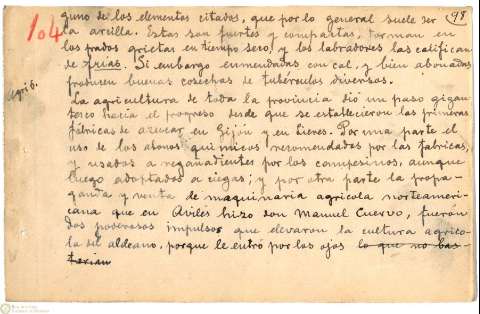 104
98
guno de los elementos citados, que por lo general suele ser
la arcilla. Estas son fuertes y compactas, forman en
los prados grietas en tiempo seco, y los labradores las califican
de frías. Si embargo enmendadas con cal, y bien abonadas
producen buenas cosechas de tubérculos diversos.
La agricultura de toda la provincia dió un paso gigan-
tesco hacia el progreso desde que se establecieron las primeras
fábricas de azucar en Gijón y en Lieres. Por una parte el
uso de los abonos químicos recomendados por las fabricas,
y usados a regañadientes por los campesinos, aunque
luego adoptados a ciegas; y por otra parte la propa-
ganda y venta de maquinaria agricola norteameri-
cana que en Avilés hizo don Manuel Cuervo, fueron
dos poderosos impulsos que elevaron la cultura agríco-
la del aldeano, porque le entró por los ojos lo que no bas-
tarían